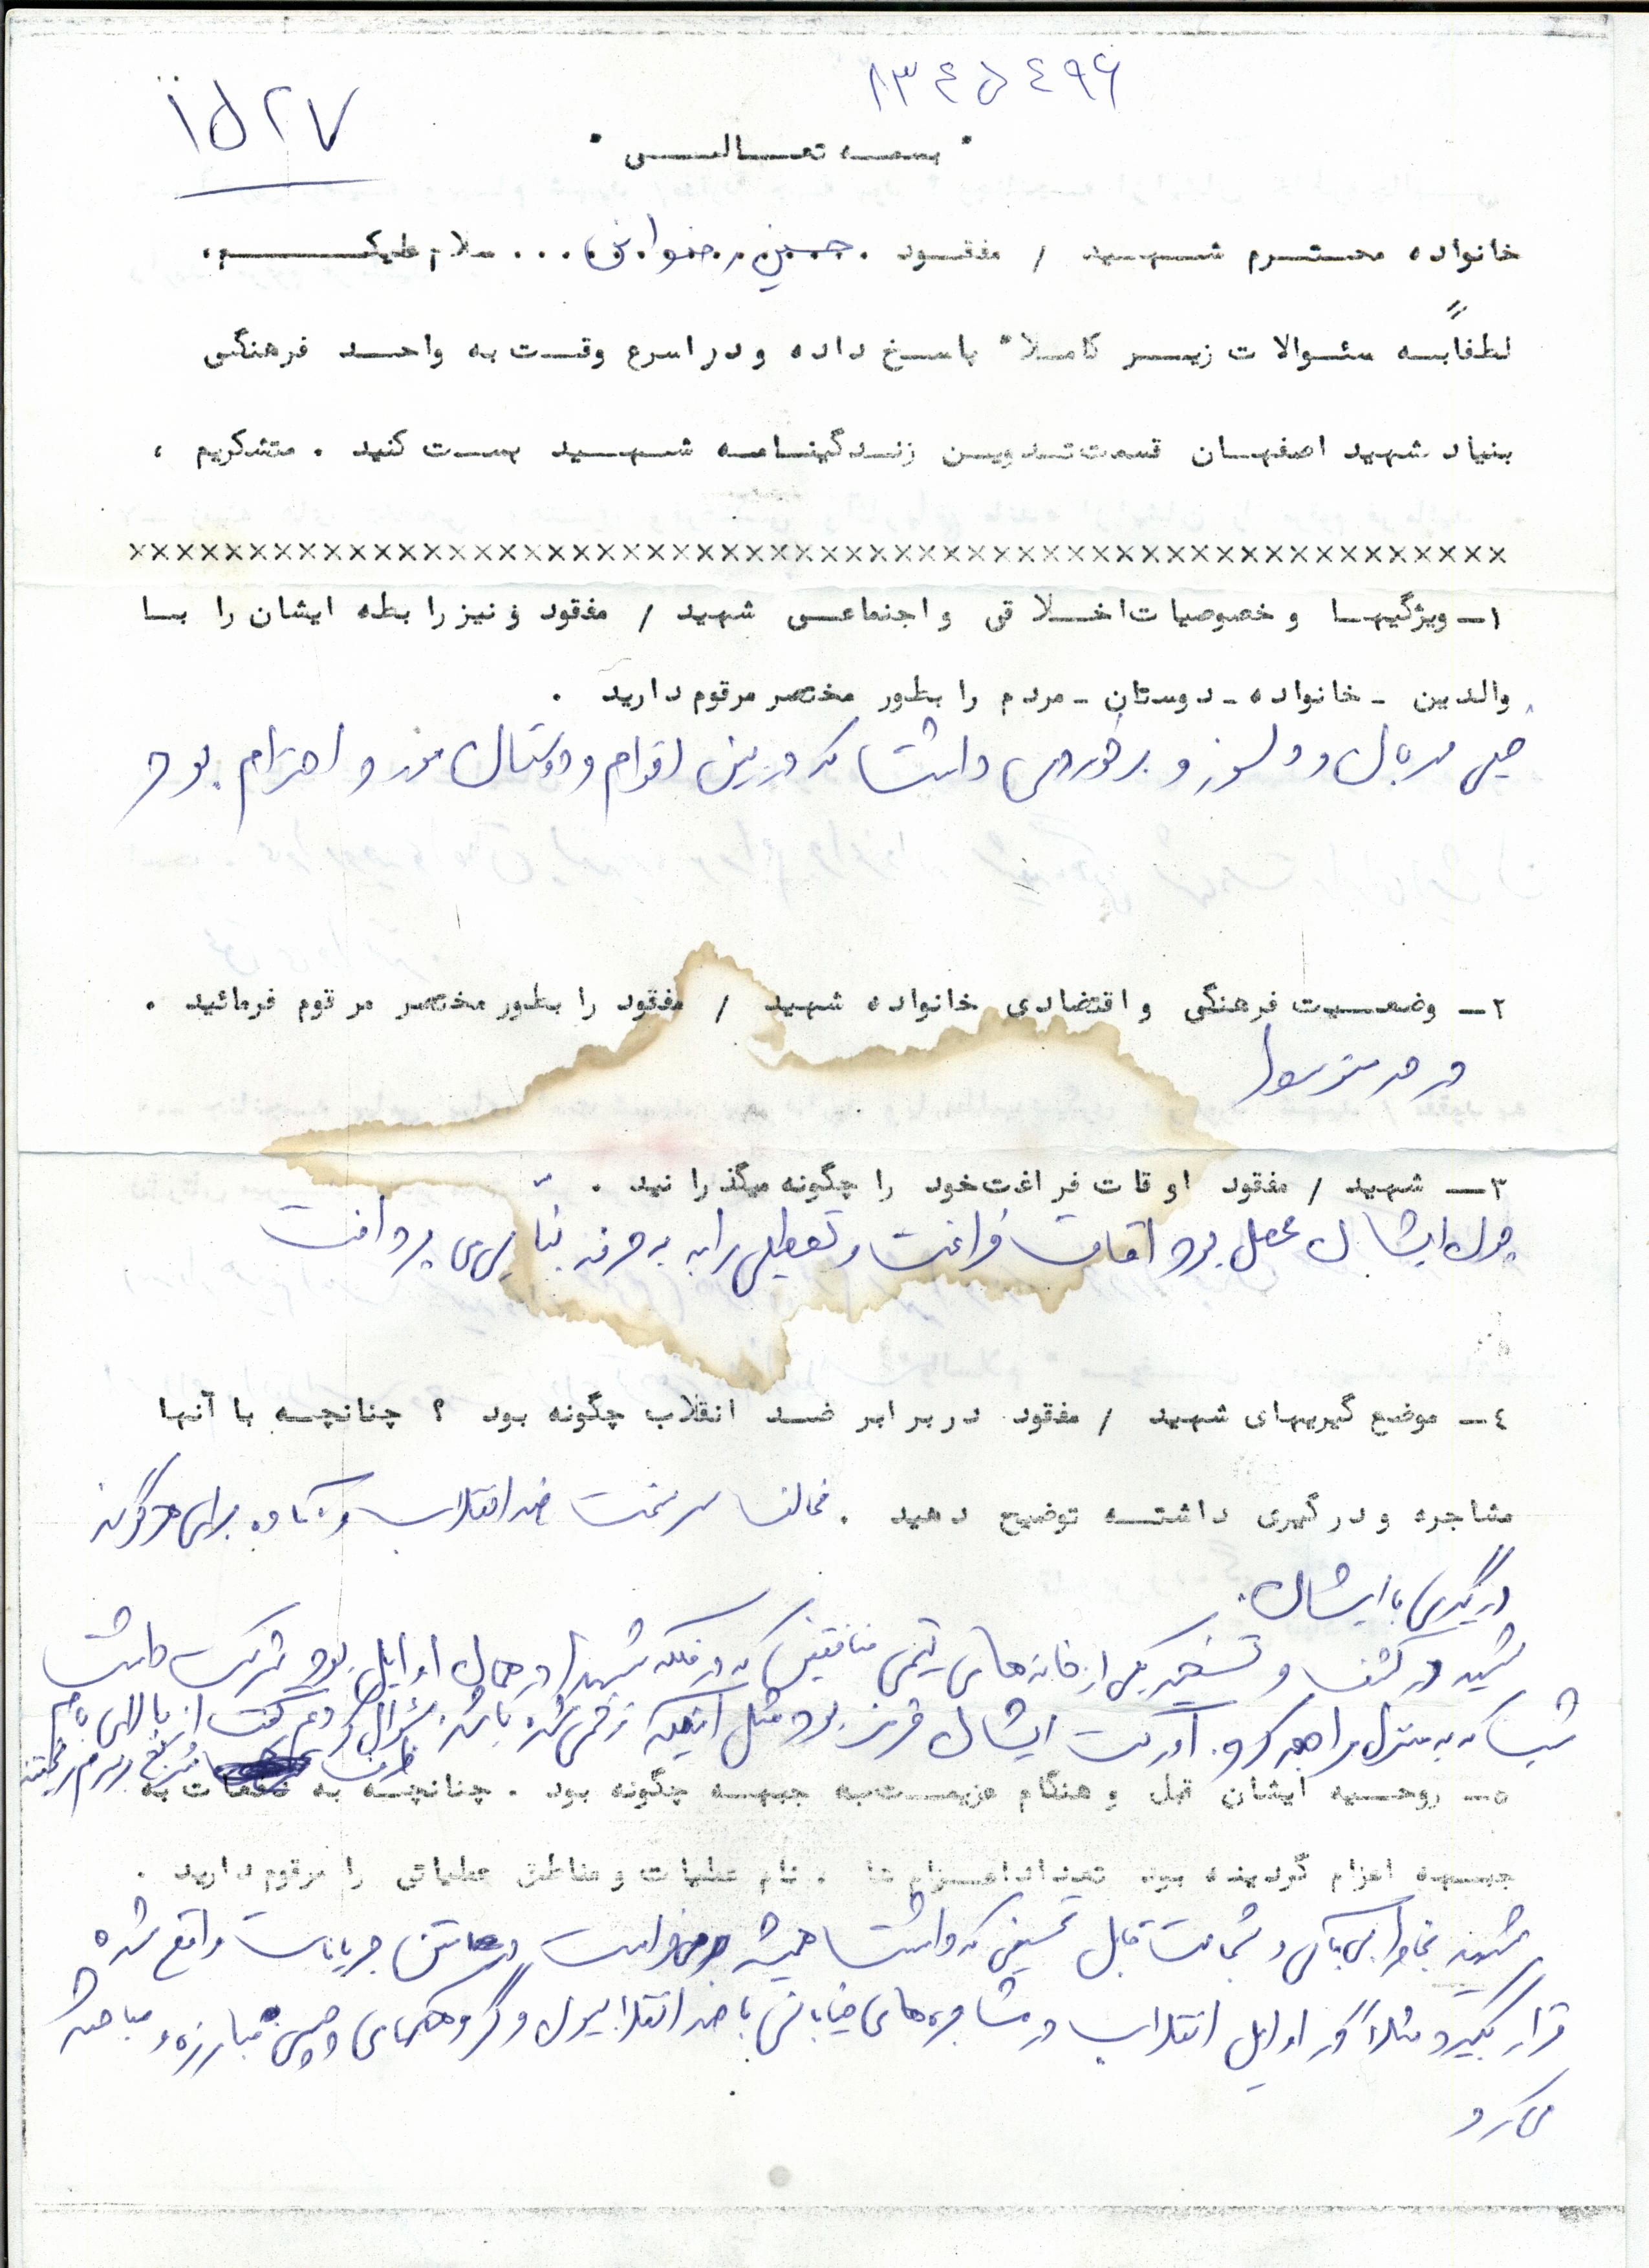 ۸۳۴۵۴۹۶
۱۵۲۷
" بسمه تعالی "
خانواده محترم شهید / مفقود . حسین رضوانی . . . سلام علیکم ،
لطفاً به سئوالات زیر کاملا" پاسخ داده و در اسرع وقت به واحد فرهنگی
بنیاد شهید اصفهان قسمت تدوین زندگینامه شهید پست کنید . متشکریم ،
××××××××××××××××××××××××××××××××××××××××××××××××××××××××
۱ـ ویژگیها و خصوصیات اخلاقی و اجتماعی شهید / مفقود و نیز رابطه ایشان را با
والدین ـ خانواده ـ دوستان ـ مردم را بطور مختصر مرقوم دارید .
خیلی مهربان و دلسوز و برخوردی داشت که در بین اقوام و دوستان مورد احترام بود
۲ـ وضعیت فرهنگی و اقتضادی خانواده شهید / مفقود را بطور مختصر مرقوم فرمائید .
در حد متوسط
۳ـ شهید / مفقود اوقات فراغت خود را چگونه میگذرانید .
چون ایشان محصل بود اوقات فراغت و تعطیلی را به حرفه بنایی می پرداخت
٤ـ موضع گیریهای شهید / مفقود در برابر ضد انقلاب چگونه بود ؟ چنانچه با آنها
مشاجره و درگیری داشته توضیح دهید . مخالف سرسخت ضد انقلاب و آماده برای هرگونه
درگیری با ایشان.
شهید در کشف و تسخیر یکی از خانه های تیمی منافقین که در فلکه شهدا در همان اوایل بود شرکت داشت
شب که به منزل مراجعه کرد. اورکت ایشان قرمز بود مثل اینکه زخمی شده باشد سئوال کردم گفت از بالای بام
ظرف روی سرم ریختند
۵ـ روحیه ایشان قبل و هنگام عزیمت به جبهه چگونه بود . چنانچه به دفعات به
جبهه اعزام گردیده بود تعداد اعزام ها ، نام عملیات و مناطق عملیاتی را مرقوم دارید .
شهید بخاطر بی باکی و شجاعت قابل تحسینی که داشت همیشه می خواست در متن جریانات واقع شده
قرار بگیرد مثلاً در اوایل انقلاب در مشاجره های خیابانی با ضد انقلابیون و گروهکهای چپی مبارزه و مباحثه
می کرد